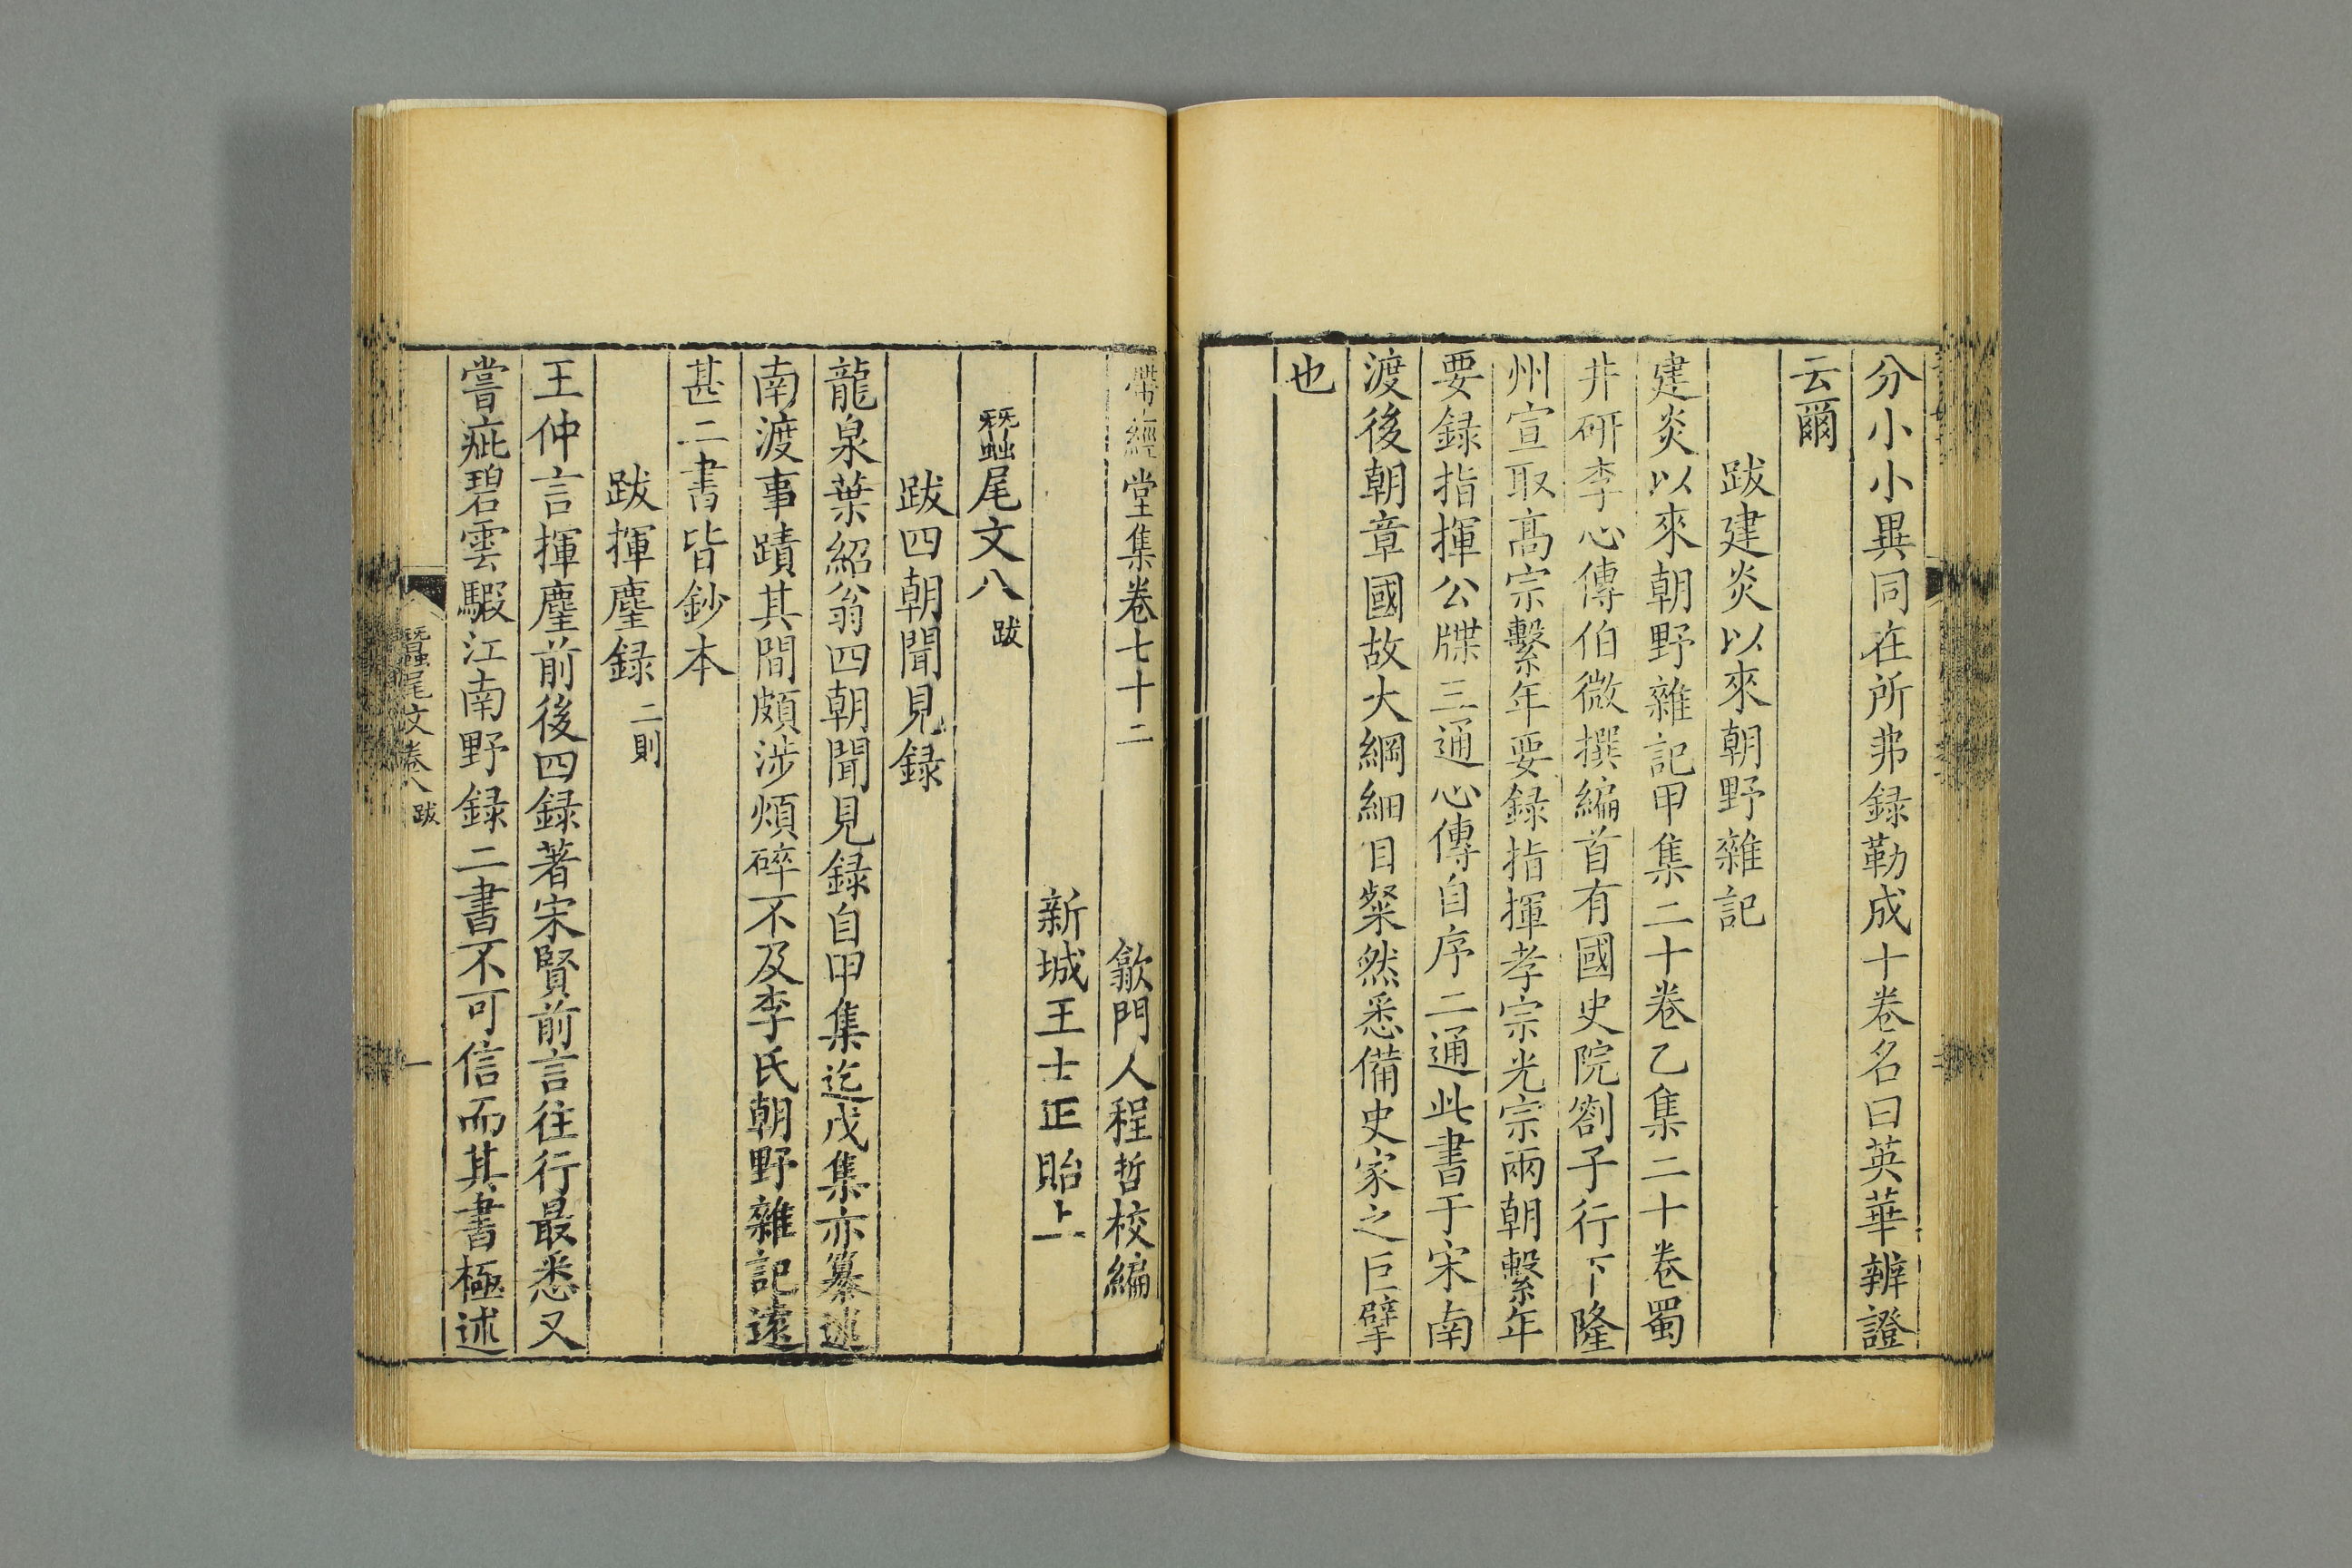 分小小異同在所弗録勒成十卷名曰英華辨證
云爾
跋建炎以來朝野雜記
建炎以來朝野雜記甲集二十卷乙集二十卷蜀
井研李心傳伯微撰編首有國史院劄子行下隆
州宣取髙宗繫年要録指揮孝宗光宗兩朝繫年
要録指揮公牒三通心傳自序二通此書于宋南
渡後朝章國故大綱細目粲然悉備史家之巨擘
也
帶經堂集卷七十二 歙門人程哲校編
新城王士正貽上
蠶尾文八 跋
跋四朝聞見録
龍泉葉紹翁四朝聞見録自甲集迄戊集亦纂述
南渡事蹟其間頗涉煩碎不及李氏朝野雜記遠
甚二書皆鈔本
跋揮麈録 二則
王仲言揮麈前後四録著宋賢前言往行最悉又
嘗疵碧雲騢江南野録二書不可信而其書極述
蠶尾文卷八 跋 一